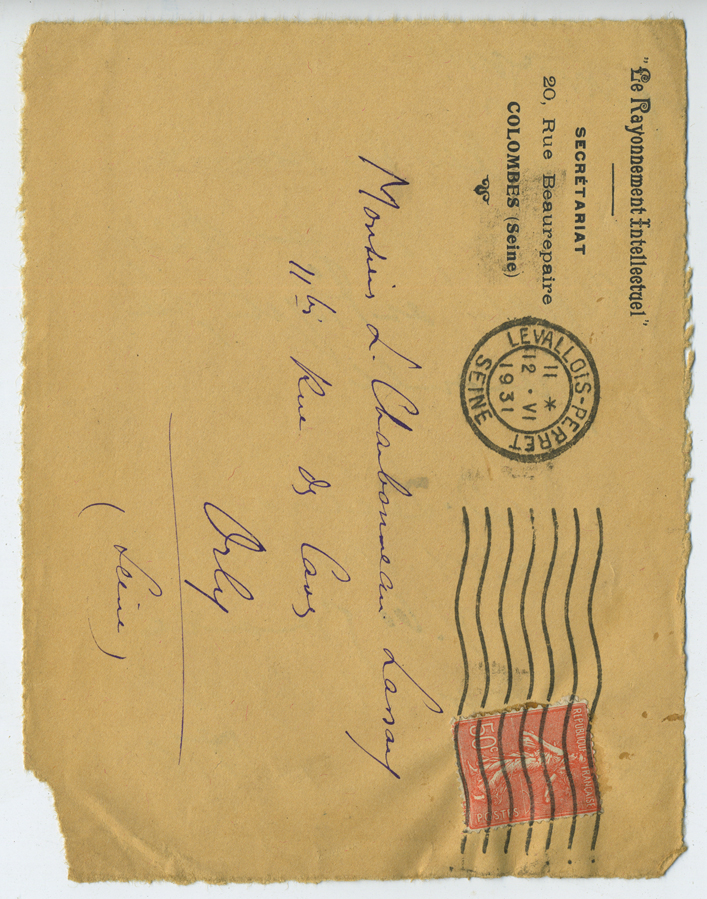 "Le Rayonnement Intellectuel"
SECRÉTARIAT
20, Rue Beaurepaire
COLOMBES (Seine)
LEVALLOIS-PERRET
11 *
12 • VI
1931
SEINE
REPUBLIQUE FRANÇAISE
50c
POSTES
Monsieur L. Charbonneau Lassay
11 bis Rue des
Orly
(Seine)